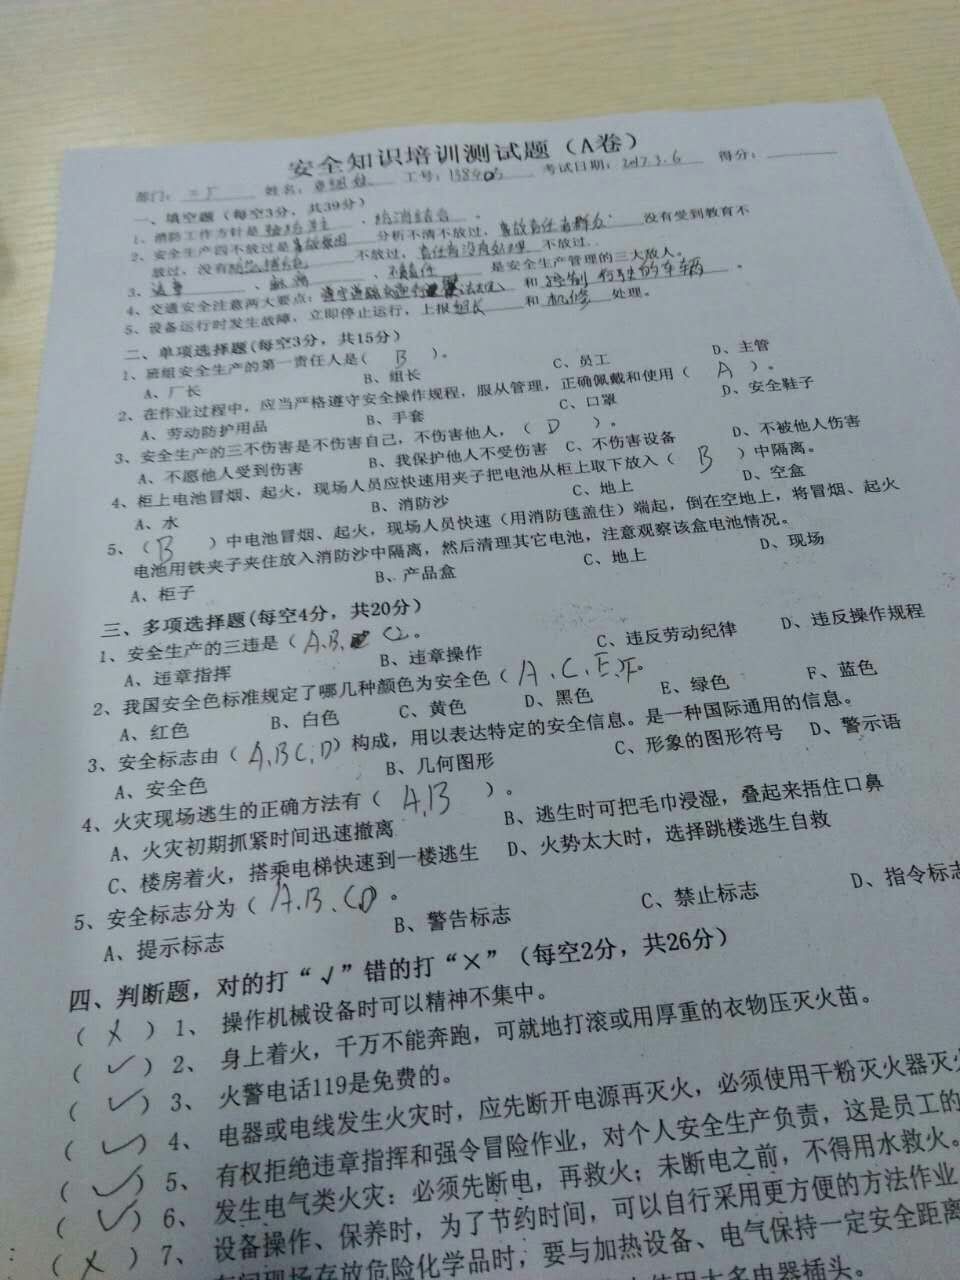 安全知识培训测试题（A卷）
部门： 二厂 姓名： 工号： 考试日期：2017.3.6 得分：
一、填空题（每空3分，共39分）
1、消防工作方针是 预防为主 、 防消结合 。
2、安全生产四不放过是事故原因 分析不清不放过，事故责任者群众 没有受到教育不
放过，没有防范措施 不放过，责任者没有处理 不放过。
3、违章 、麻痹 、不负责任 是安全生产管理的三大敌人。
4、交通安全注意两大要点：遵守道路交通 法规 和 控制行驶的车辆 。
5、设备运行时发生故障，立即停止运行，上报组长 和 机修 处理。
二、单项选择题(每空3分，共15分）
1、班组安全生产的第一责任人是（ B ）。
A、厂长 B、组长 C、员工 D、主管
2、在作业过程中，应当严格遵守安全操作规程，服从管理，正确佩戴和使用（ A ）。
A、劳动防护用品 B、手套 C、口罩 D、安全鞋子
3、安全生产的三不伤害是不伤害自己，不伤害他人，（ D ）。
A、不愿他人受到伤害 B、我保护他人不受伤害 C、不伤害设备 D、不被他人伤害
4、柜上电池冒烟、起火，现场人员应快速用夹子把电池从柜上取下放入（ B ）中隔离。
A、水 B、消防沙 C、地上 D、空盒
5、（ B ）中电池冒烟、起火，现场人员快速（用消防毯盖住）端起，倒在空地上，将冒烟、起火
电池用铁夹子夹住放入消防沙中隔离，然后清理其它电池，注意观察该盒电池情况。
A、柜子 B、产品盒 C、地上 D、现场
三、多项选择题(每空4分，共20分）
1、安全生产的三违是（ A.B. C ）。
A、违章指挥 B、违章操作 C、违反劳动纪律 D、违反操作规程
2、我国安全色标准规定了哪几种颜色为安全色（ A、C、E、F 。
A、红色 B、白色 C、黄色 D、黑色 E、绿色 F、蓝色
3、安全标志由（ A,B C, D ）构成，用以表达特定的安全信息。是一种国际通用的信息。
A、安全色 B、几何图形 C、形象的图形符号 D、警示语
4、火灾现场逃生的正确方法有（ A,B ）。
A、火灾初期抓紧时间迅速撤离 B、逃生时可把毛巾浸湿，叠起来捂住口鼻
C、楼房着火，搭乘电梯快速到一楼逃生 D、火势太大时，选择跳楼逃生自救
5、安全标志分为（ A.B、C.D ）。
A、提示标志 B、警告标志 C、禁止标志 D、指令标志
四、判断题，对的打“√”错的打“×”（每空2分，共26分）
（ × ）1、 操作机械设备时可以精神不集中。
（ √ ）2、 身上着火，千万不能奔跑，可就地打滚或用厚重的衣物压灭火苗。
（ √ ）3、 火警电话119是免费的。
（ √ ）4、 电器或电线发生火灾时，应先断开电源再灭火，必须使用干粉灭火器灭火
（ √ ）5、 有权拒绝违章指挥和强令冒险作业，对个人安全生产负责，这是员工的
（ √ ）6、 发生电气类火灾：必须先断电，再救火；未断电之前，不得用水救火。
（ × ）7、 设备操作、保养时，为了节约时间，可以自行采用更方便的方法作业
现场存放危险化学品时，要与加热设备、电气保持一定安全距离
使用大多电器插头。